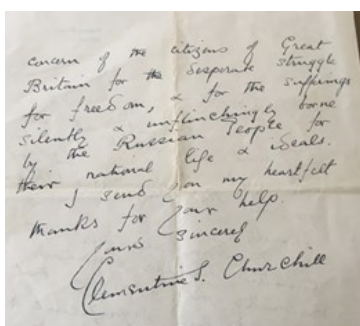 concern of the citizens of Great
Britain for the desperate struggle
for freedom, & for the sufferings
silently & unflinchingly borne
by the Russian People for
their national life & ideals.
I send you my heartfelt
thanks for your help.
Yours sincerely
Clementine S. Churchill